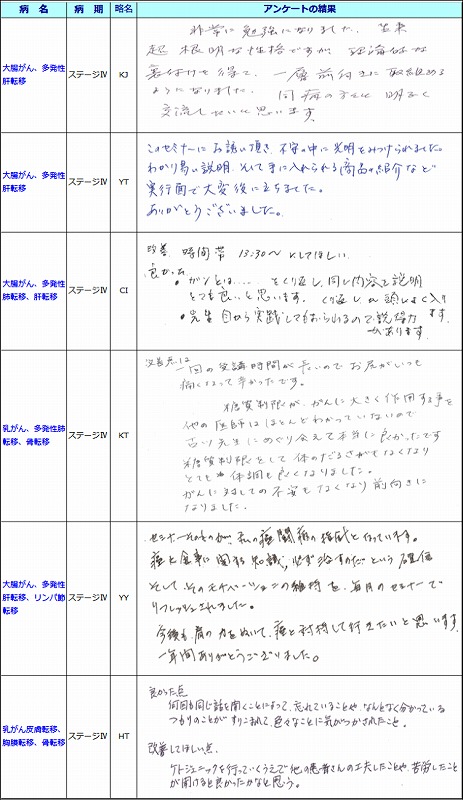 病　名　病　期　略名　アンケートの結果
大腸がん、多発性
肝転移
ステージⅣ
KJ
非常に勉強になりました。
起 根明な性格ですが、
裏付けを得て、一層前向きに取り組める
ようになりました。同病の方とは 明るく
交流したいと思います。
大腸がん、多発性
肝転移
ステージⅣ
YT
このセミナーにお誘い頂き、不安の中に光明をみつけられました。
わかり易い説明、そして手に入れられる商品の紹介など
実行面で大変役に立ちました。
ありがとうございました。
大腸がん、多発性
肺転移、肝転移
ステージⅣ
CI
改善 時間帯 13:30～ にしてほしい
良かった
・ガンとは..... とくり返し、同じ内容を説明
とても良いと思います。くり返し 頭によく入ります。
・先生自から実践してもおられるので説得力
があります。
乳がん、多発性肺
転移、骨転移
ステージⅣ
KT
改善点は
一回の受講時間が長いので お尻がいつも
痛くなって辛かったです。
糖質制限が、がんに大きく作用する事を
他の医師はほとんどわかっていないので
古川先生にめぐり会えて本当に良かったです
糖質制限をして 体のだるさがなくなり
とても 体調も良くなりました。
がんに対しての不安もなくなり前向きに
なりました。
大腸がん、多発性
肝転移、リンパ節
転移
ステージⅣ
YY
セミナーそのものが、私の癌闘病の指針と行っています。
癌と食事に関する知識、必ず治すのだという確信
そして、そのモチベーションの維持を、毎月のセミナーで
リフレッシュされました。
今後も、肩の力をぬいて、癌と対峙して行きたいと思います。
一年間ありがとうございました。
乳がん皮膚転移、
胸膜転移、骨転移
ステージⅣ
HT
良かった点
何回も同じ話を聞くことによって、忘れていることや、なんとなく分かっている
つもりのことが すりこまれて、色々なことに気がつかされたこと。
改善してほしい点
ケトジェニックを行っていくうえで他の患者さんの工夫したことや、苦労したこと
が聞けると良かったかなと思う。